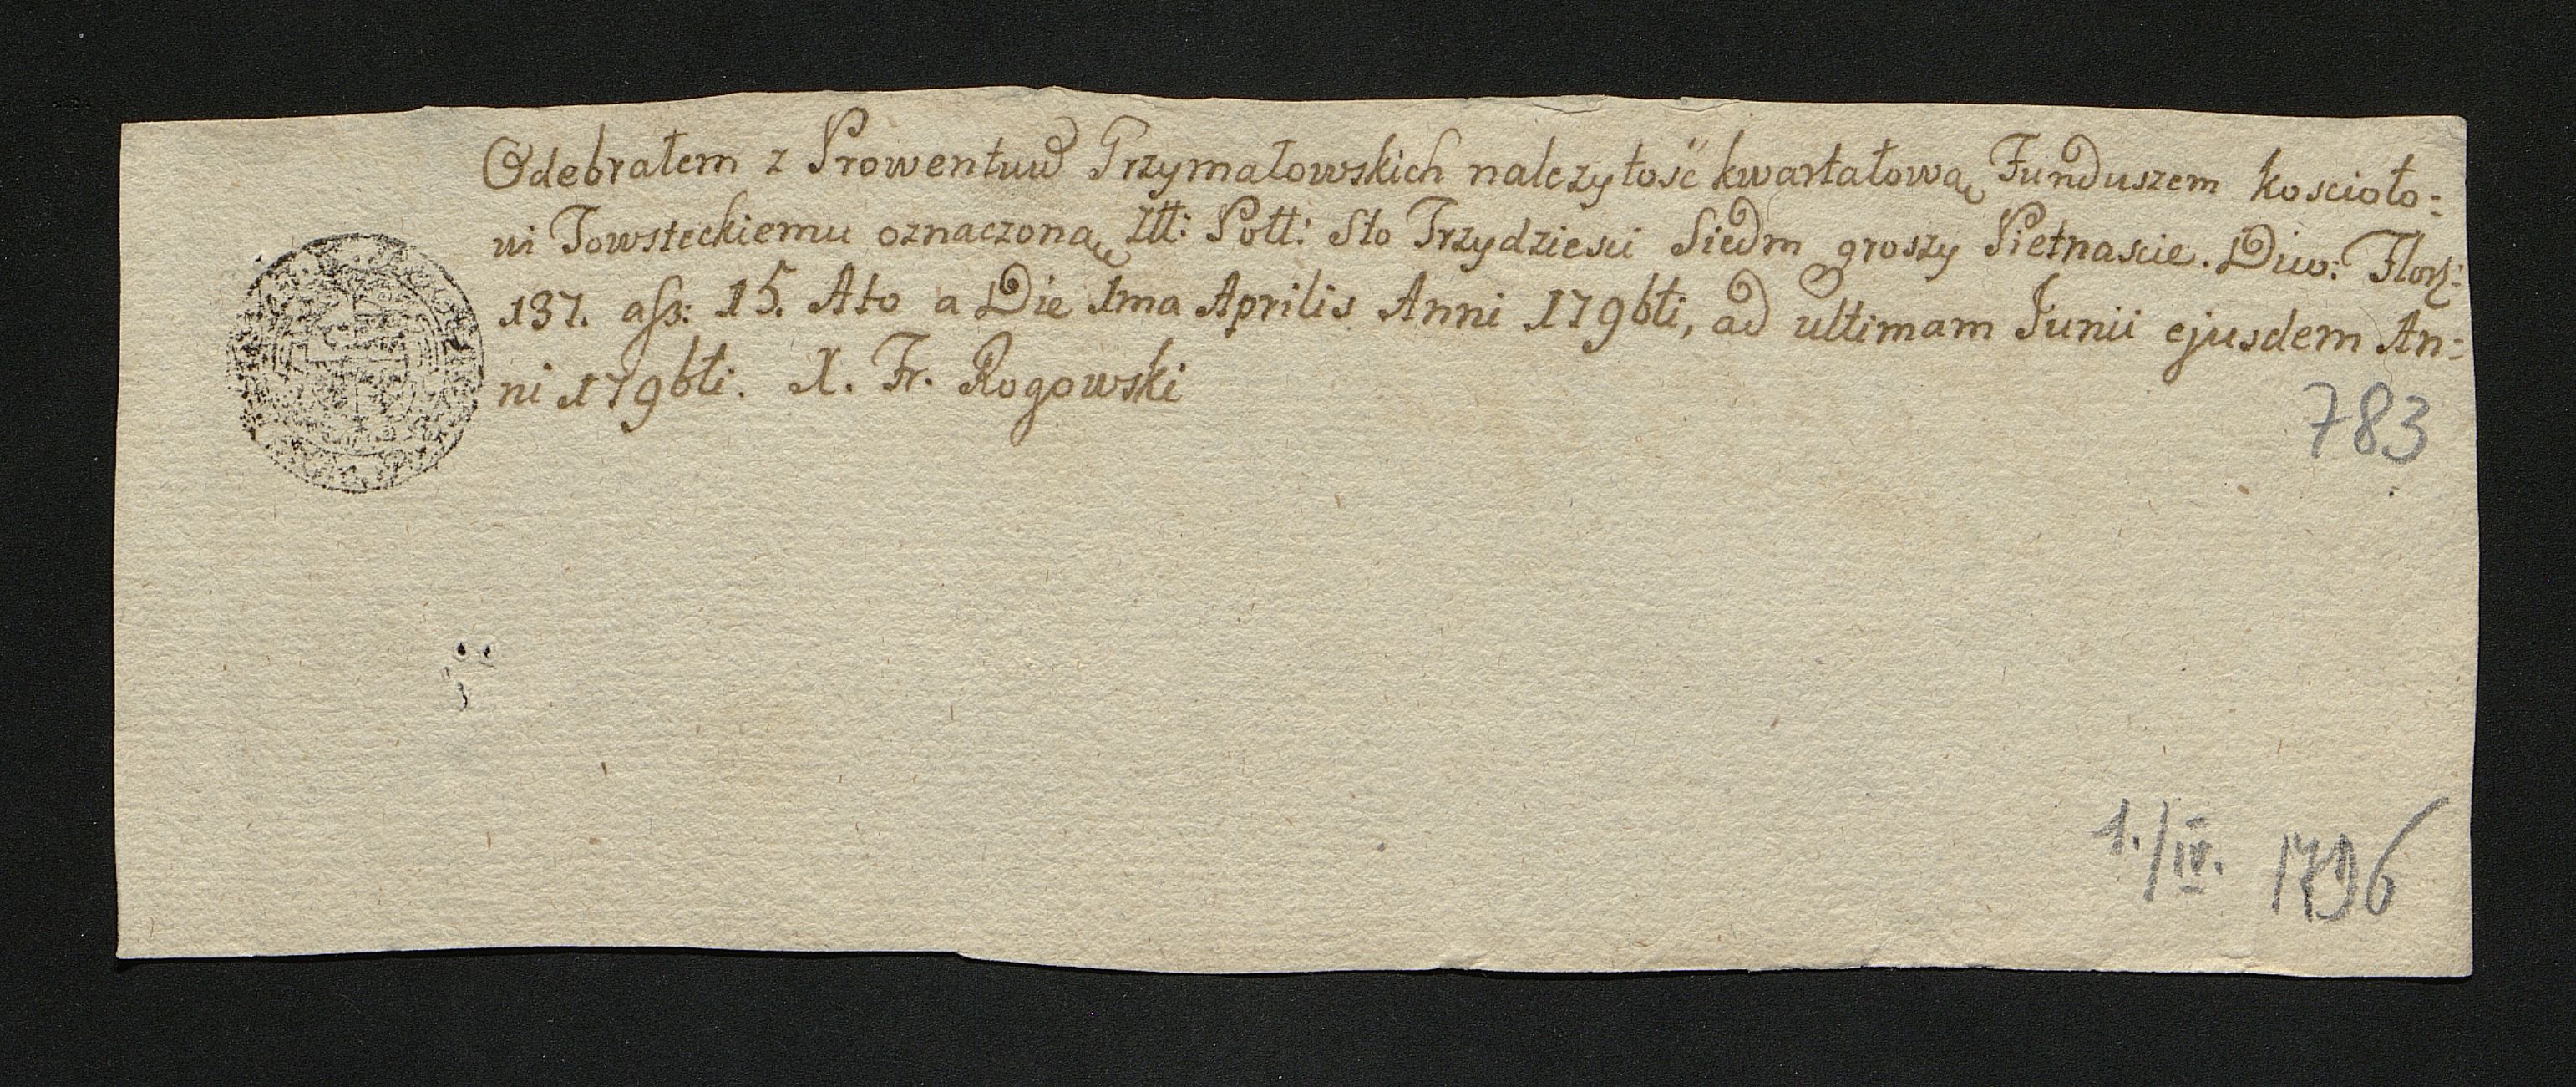 Odebrałem z Prowentuw Grzymałowskich nalezytość kwartałową Funduszem kosciоło:
wi Towsteckiemu oznaczoną Złł: Poll: Sto Trzydziesci Siedm groszy Pietnascie. Diw: Flor:
137. aſs: 15. Ato a Die 1ma Aprilis Anni 1796ti, ad ultimam Junii ejusdem An:
ni 1796ti. X. Fr. Rogowski
783
1./IV. 1796